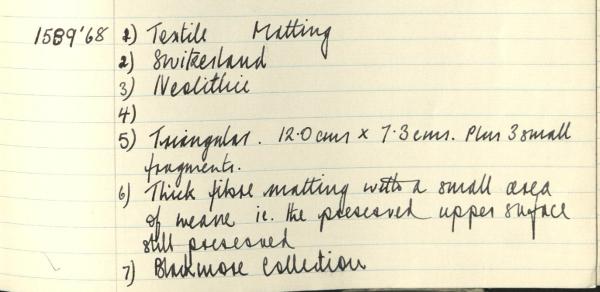 1589'68 1) Textile Matting
2) Switzerland
3) Neolithic
4)
5) Triangular. 12.0cms x 7.3cms. Plus 3 small
fragments.
6) Thick fibre matting with a small area
of weave ie. the preserved upper surface
still preserved
7) Blackmore Collection